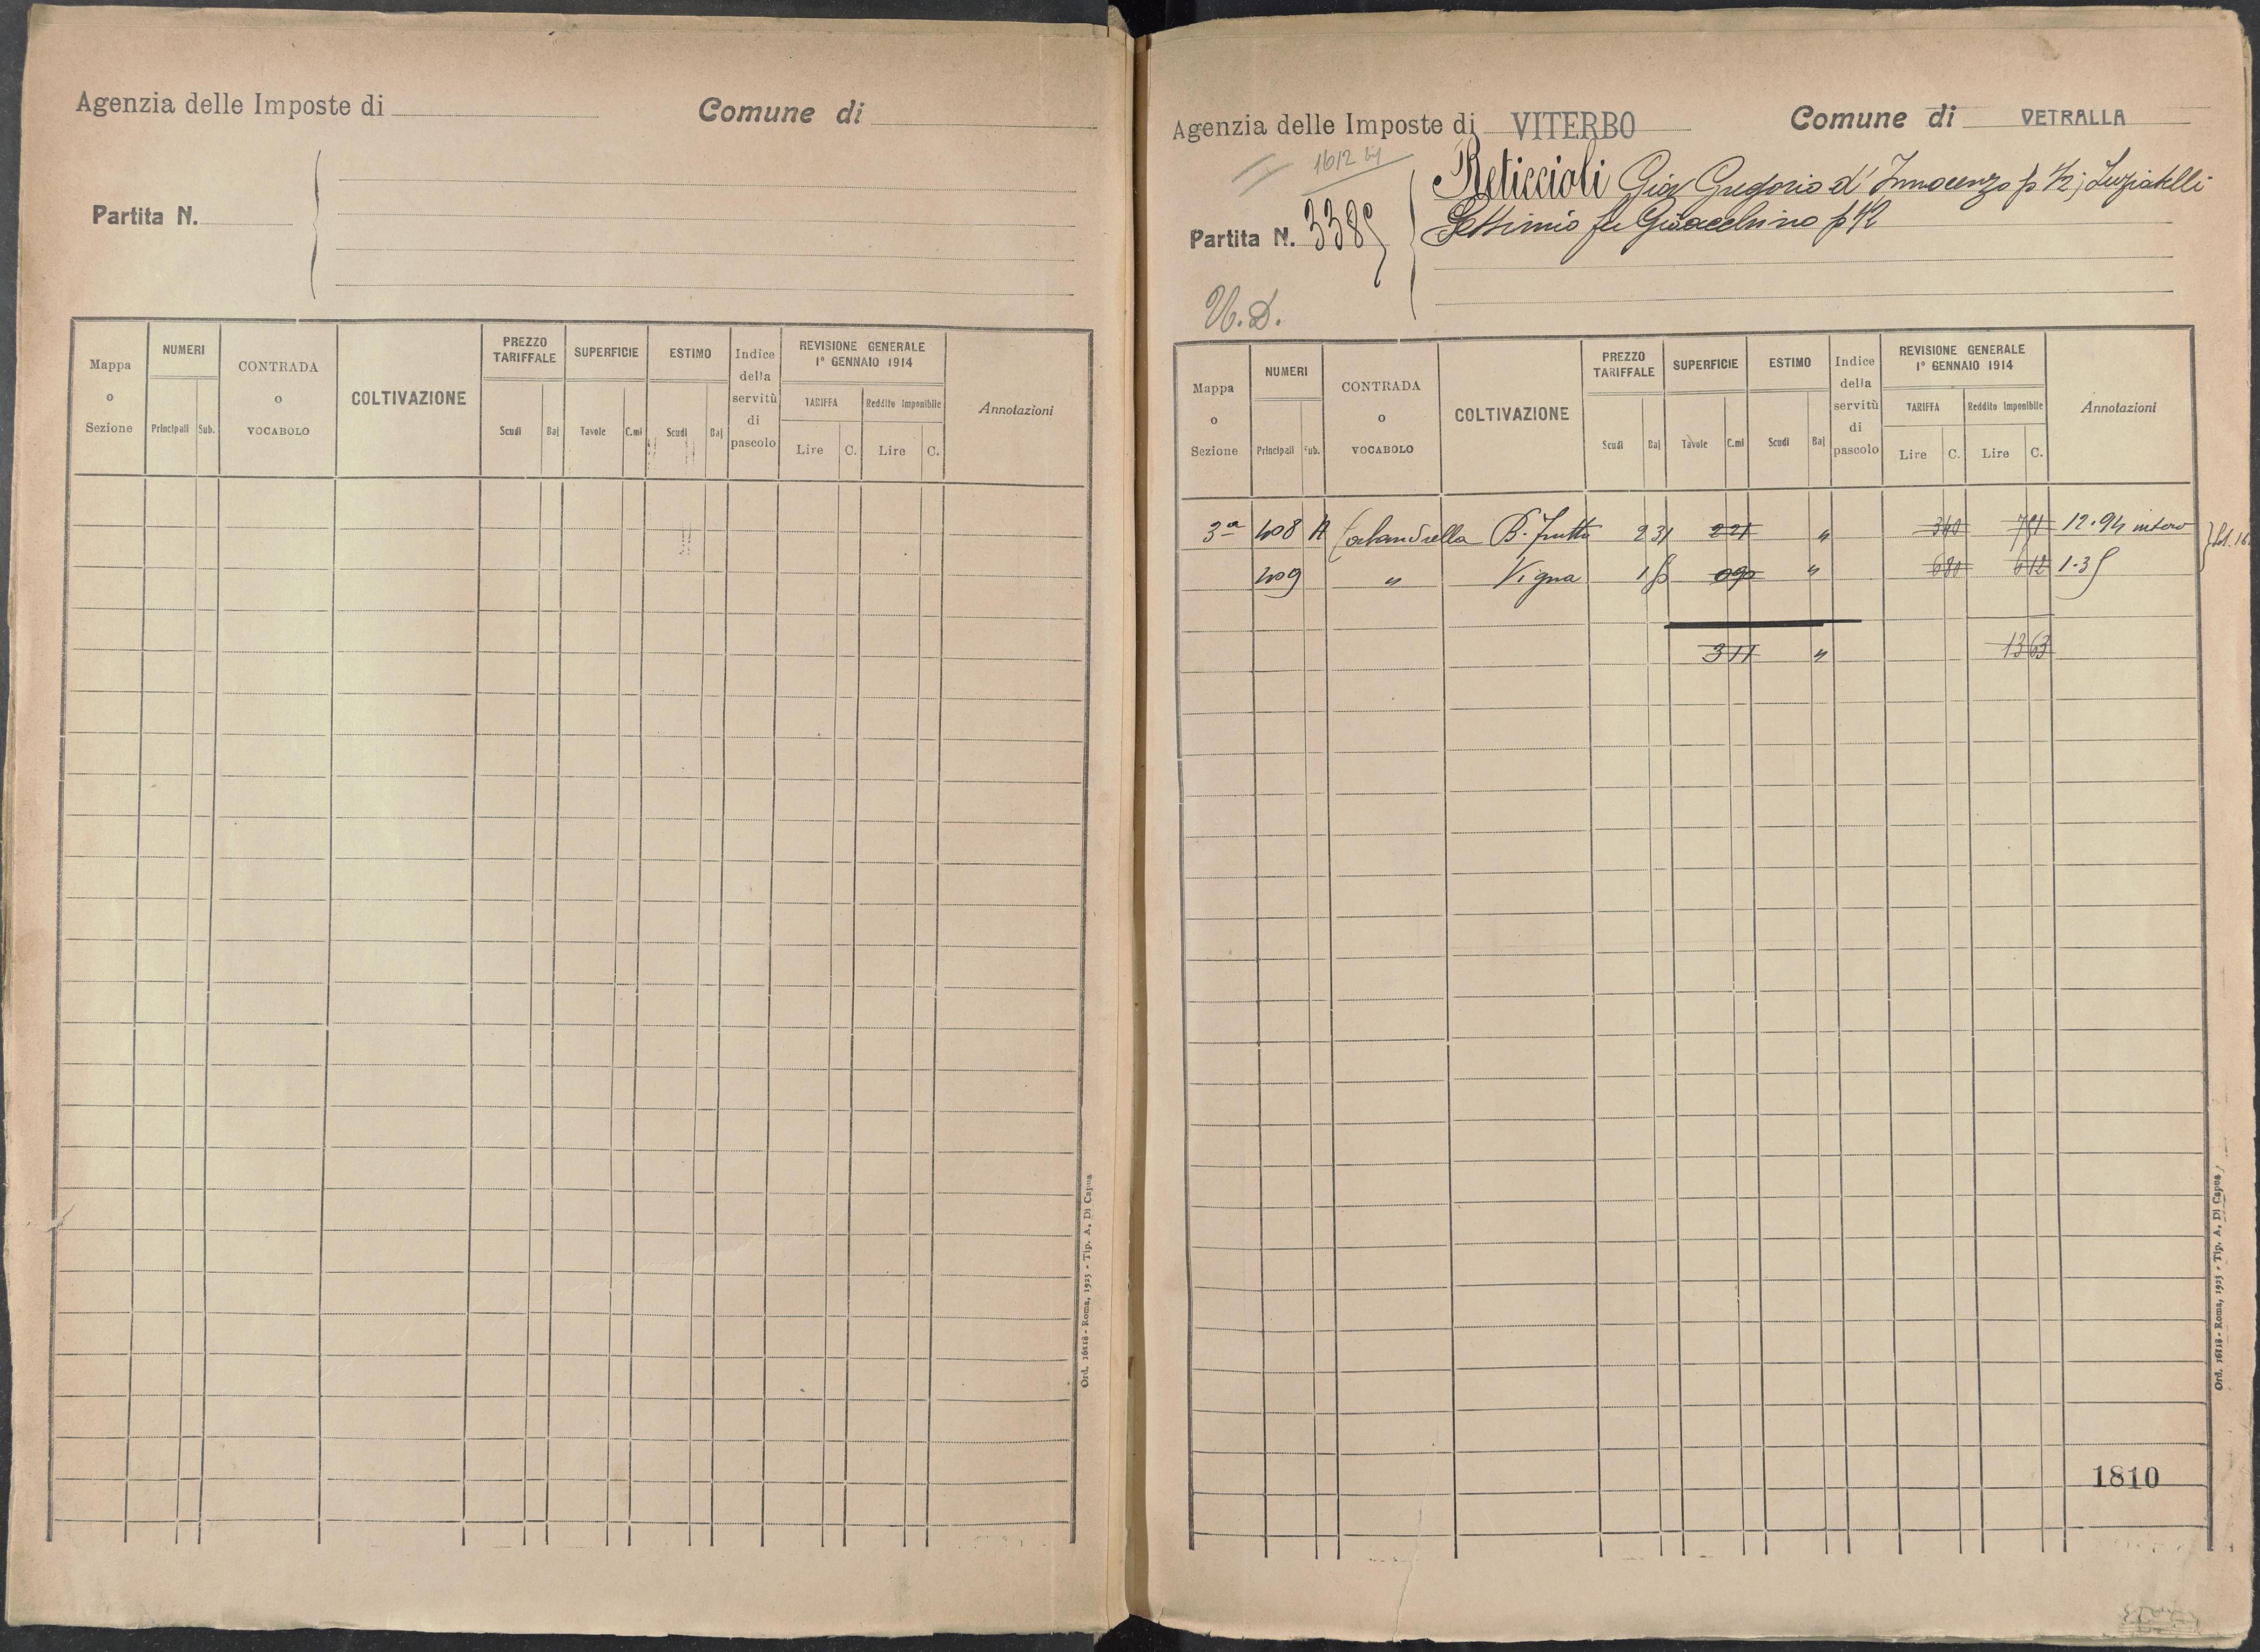 Agenzia delle Imposte di
Comune di
Partita N.
Mappa o Sezione
NUMERI
Principali Sub.
CONTRADA o VOCABOLO
COLTIVAZIONE
PREZZO TARIFFALE
Scudi Baj
SUPERFICIE
Tavole C.mi
ESTIMO
Scudi Baj
Indice della servitù di pascolo
REVISIONE GENERALE 1° GENNAIO 1914
TARIFFA
Lire C.
Reddito Imponibile
Lire C.
Annotazioni
Ord. 16118 - Roma, 1923 - Tip. A. Di Capua
Agenzia delle Imposte di VITERBO
Comune di VETRALLA
1612
Partita N. 3385
Reticcioli Gio Gregorio d' Innocenzo p 1/2; Luziatelli
Settimio fu Gioacchino p 1/2
Mappa o Sezione
NUMERI
Principali Sub.
CONTRADA o VOCABOLO
COLTIVAZIONE
PREZZO TARIFFALE
Scudi Baj
SUPERFICIE
Tavole C.mi
ESTIMO
Scudi Baj
Indice della servitù di pascolo
REVISIONE GENERALE 1° GENNAIO 1914
TARIFFA
Lire C.
Reddito Imponibile
Lire C.
Annotazioni
3a 408 A B. frutti 2 31 2 21 " 3 40 7 51 12.94 intero
409 " Vigna 0 90 " 6 80 6 12 1.35
3 11 " 13 63
1810
Ord. 16118 - Roma, 1923 - Tip. A. Di Capua